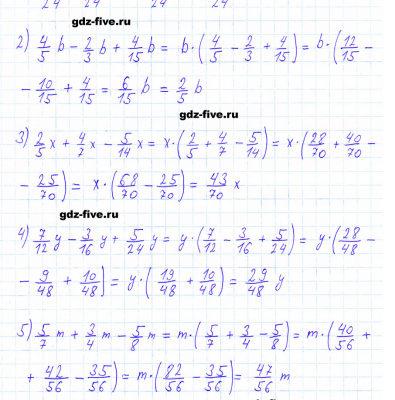 24 24 24
gdz-five.ru
2) 4/5 b - 2/3 b + 4/15 b = b·(4/5 - 2/3 + 4/15) = b·(12/15 -
- 10/15 + 4/15 = 6/15 b = 2/5 b
gdz-five.ru
3) 2/5 x + 4/7 x - 5/14 x = x·(2/5 + 4/7 - 5/14) = x·(28/70 + 40/70 -
- 25/70) = x·(68/70 - 25/70) = 43/70 x
gdz-five.ru
4) 7/12 y - 3/16 y + 5/24 y = y·(7/12 - 3/16 + 5/24) = y·(28/48 -
- 9/48 + 10/48) = y·(19/48 + 10/48) = 29/48 y
5) 5/7 m + 3/4 m - 5/8 m = m·(5/7 + 3/4 - 5/8) = m·(40/56 +
+ 42/56 - 35/56) = m·(82/56 - 35/56) = 47/56 m